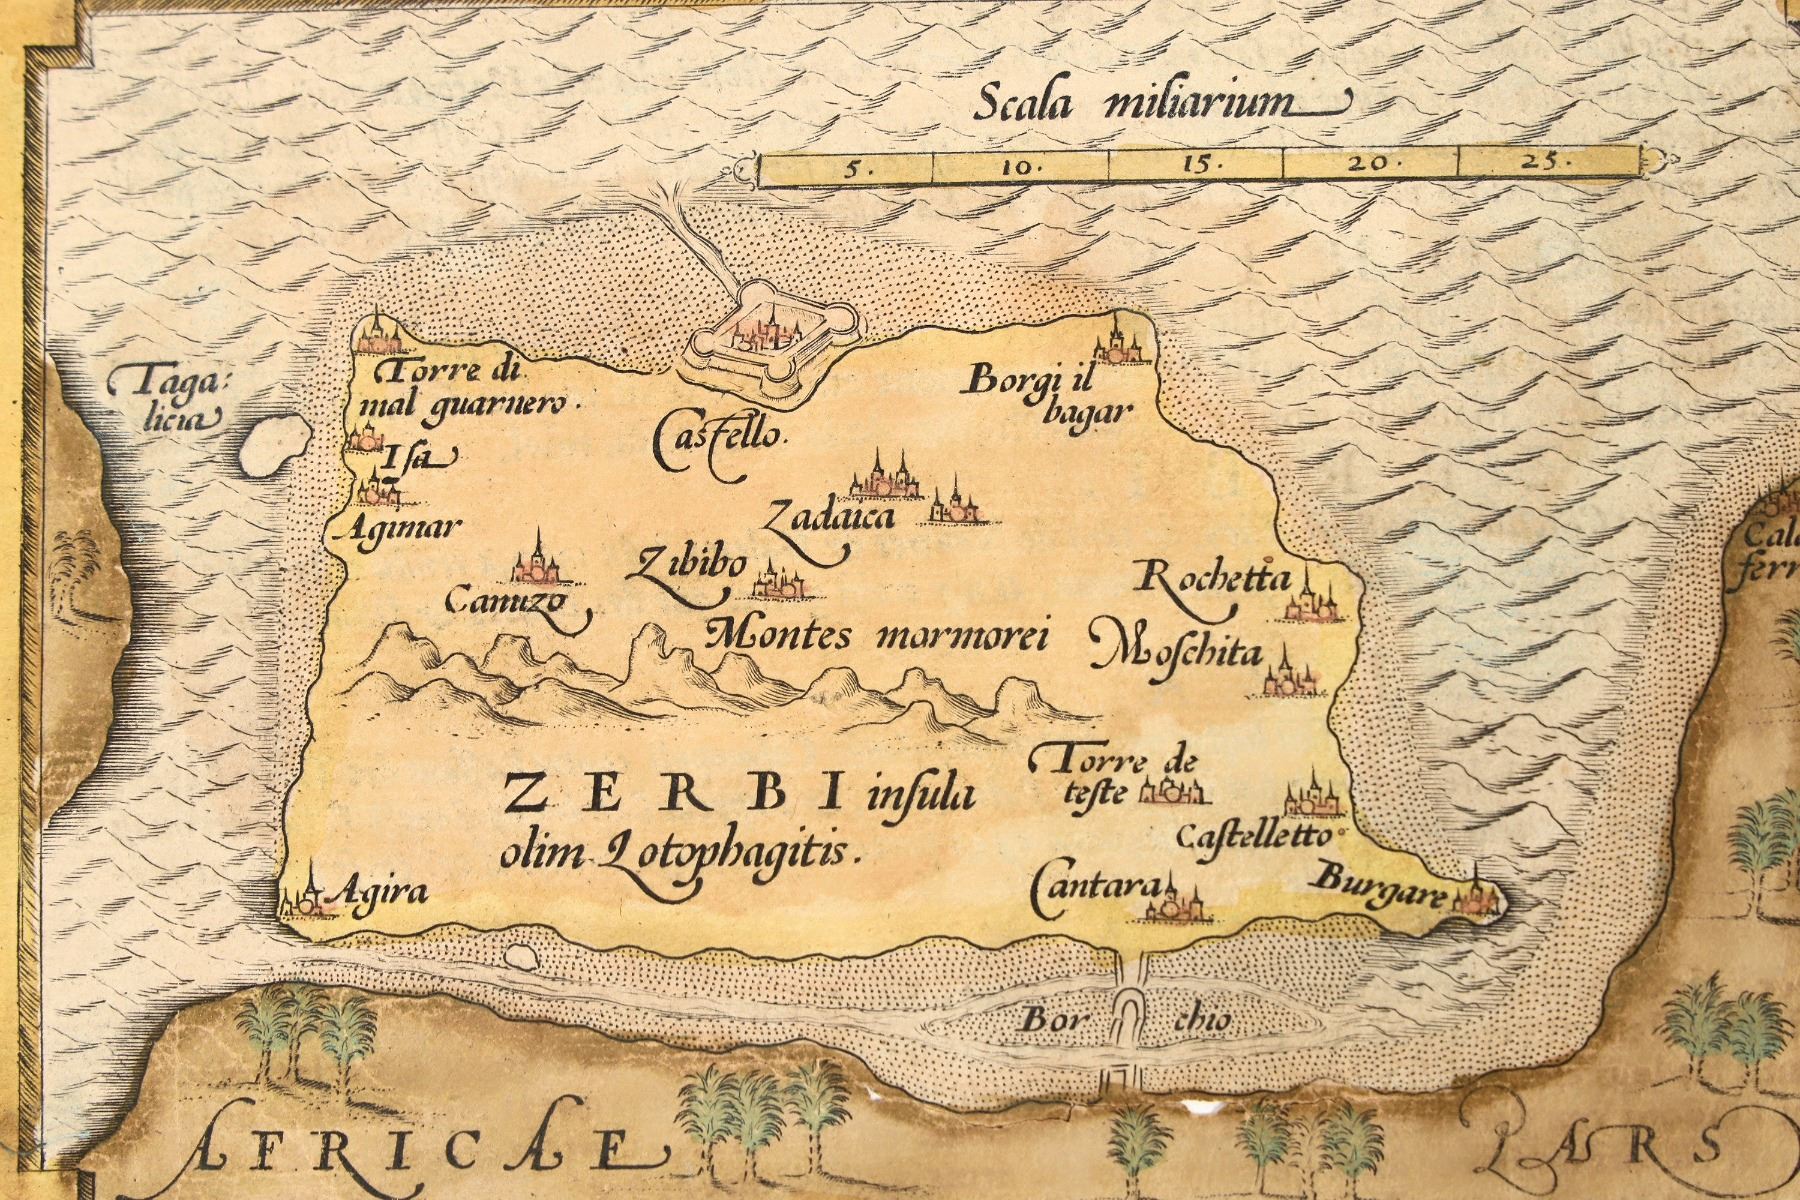 Scala miliarium
5. 10. 15. 20. 25.
Taga:
licia
Torre di
mal guarnero.
Castello.
Borgi il
bagar
Isa
Agimar
Zadaica
Canuzo
Zibibo
Rochetta
Montes marmorei
Moschita
ZERBI insula
olim Lotophagitis.
Torre de
teste
Castelletto
Agira
Cantara
Burgare
Bor chio
AFRICAE
PARS